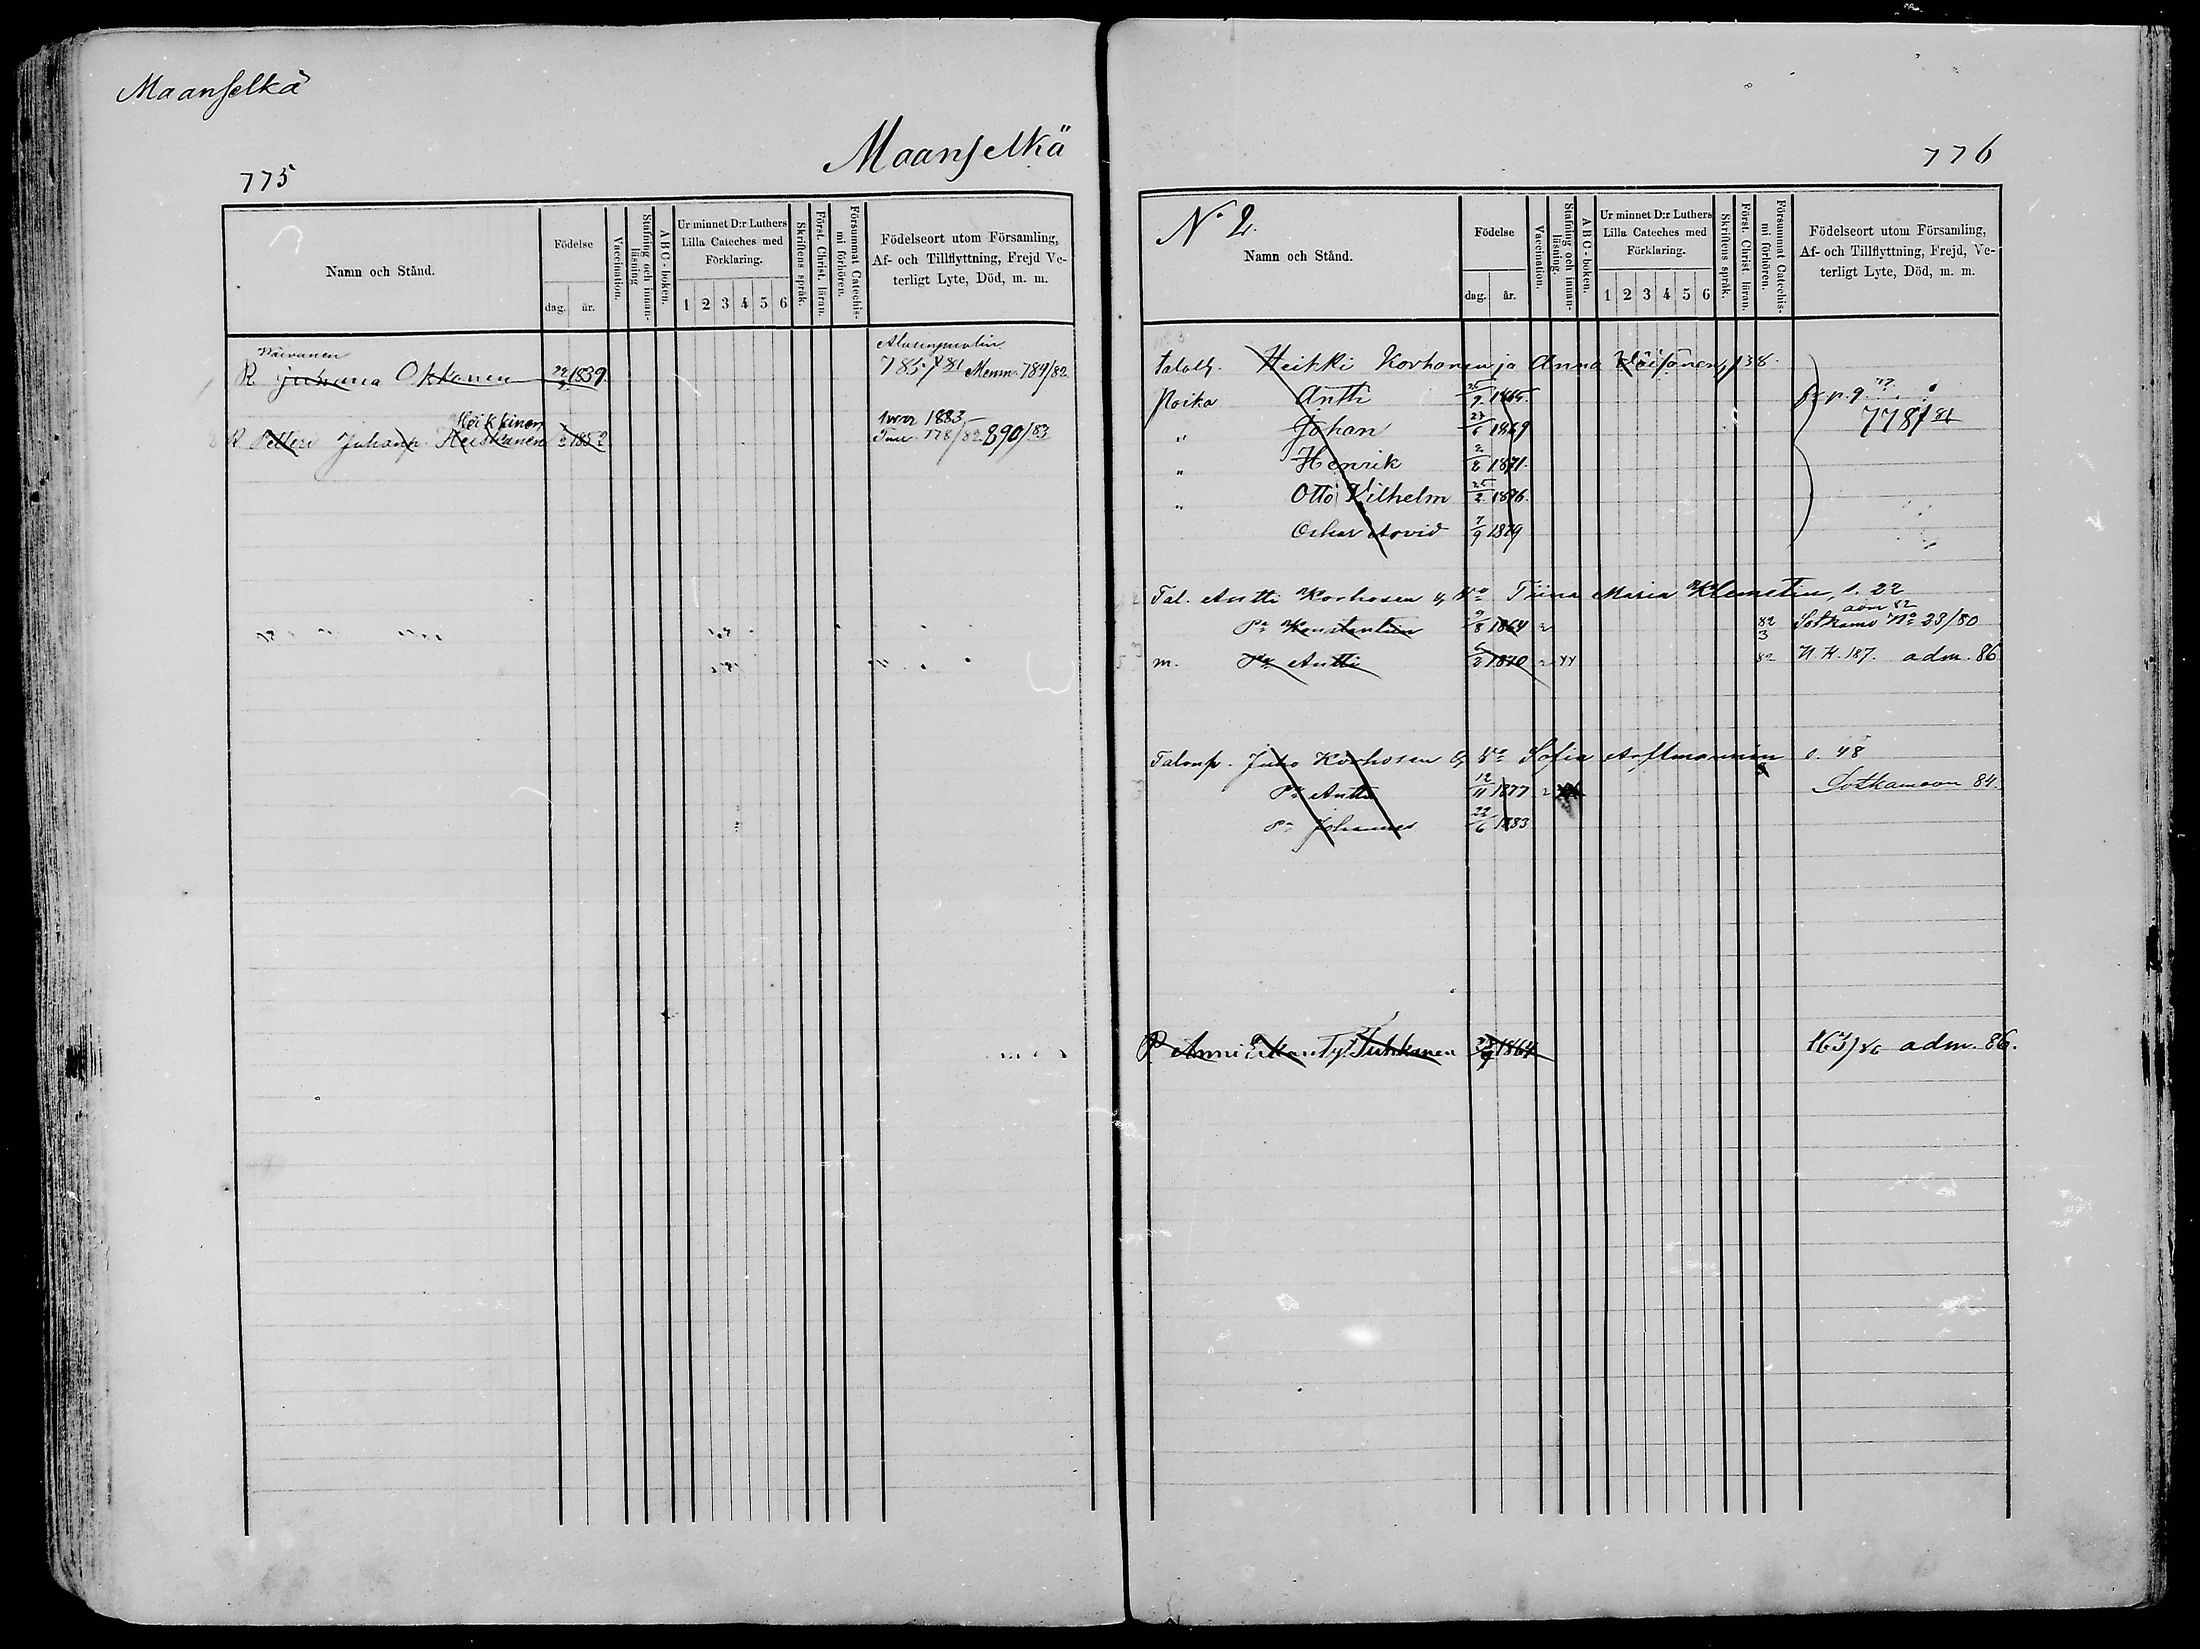 Maanselkä
Maanselkä
775
Namn och Stånd.
Födelse
dag. år.
Vaccination.
Stafning och innan-läsning
ABC-boken.
Ur minnet D:r Luthers Lilla Cateches med Förklaring.
1 2 3 4 5 6
Skriftens språk.
Först. Christ. läran.
Försummat Catechis-mi förhören.
Födelseort utom Församling, Af- och Tillflyttning, Frejd Ve-terligt Lyte, Död, m. m.
R Juhana Okkonen 1839. 785/81 Memm. 789/82
Heikkinen
R Petteri Juhanp. Heiskanen 1852 1883 778/82 890/83
776
No 2.
Namn och Stånd.
Födelse
dag. år.
Vaccination.
Stafning och innan-läsning.
ABC-boken.
Ur minnet D:r Luthers Lilla Cateches med Förklaring.
1 2 3 4 5 6
Skriftens språk.
Först. Christ. läran.
Försummat Catechis-mi förhören.
Födelseort utom Församling, Af- och Tillflyttning, Frejd, Ve-terligt Lyte, Död, m. m.
Heikki Korhonen ja Anna Väisänen, 38.
Poika Antti
778/81
" Johan 27/6 1869
" Henrik 2/8 1871.
" Otto Vilhelm 25/2 1876.
Oskar Arvid 7/9 1879
Tal. Antti Korhosen Tiina Maria Klemetin, s. 22
Pa Konstantin 9/8 1864 2 82 3 Sotkamo No 23/80
m. Pa Antti 1870 2 82 N.K. 187. adm. 86
Talonp. Juho Korhosen Sofia s. 48
Pa Antti 12/11 1877 2 Sotkamoon 84.
Pa Johannes 22/6 1883
P Anni Tuhkanen 1864 163/86 adm. 86.